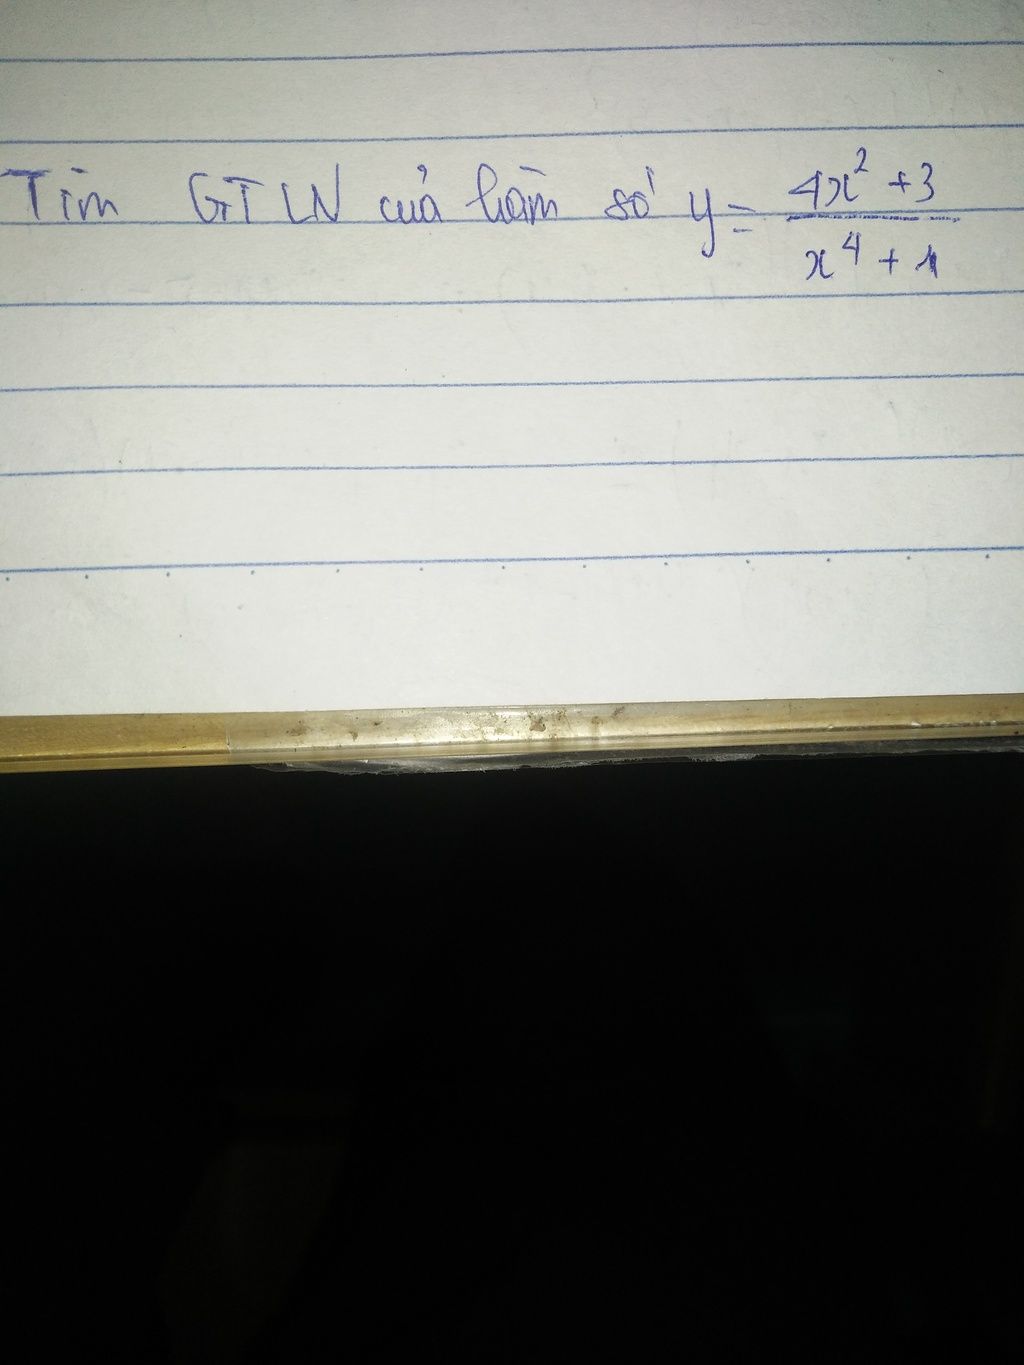 Tìm GTLN của hàm số y = \frac{4x^2 + 3}{x^4 + 1}